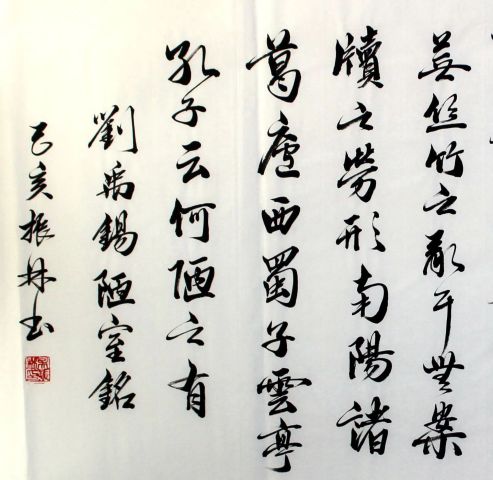 無絲竹之亂耳無案
牘之勞形南陽諸
葛廬西蜀子雲亭
孔子云何陋之有
劉禹錫陋室銘
己亥振林书